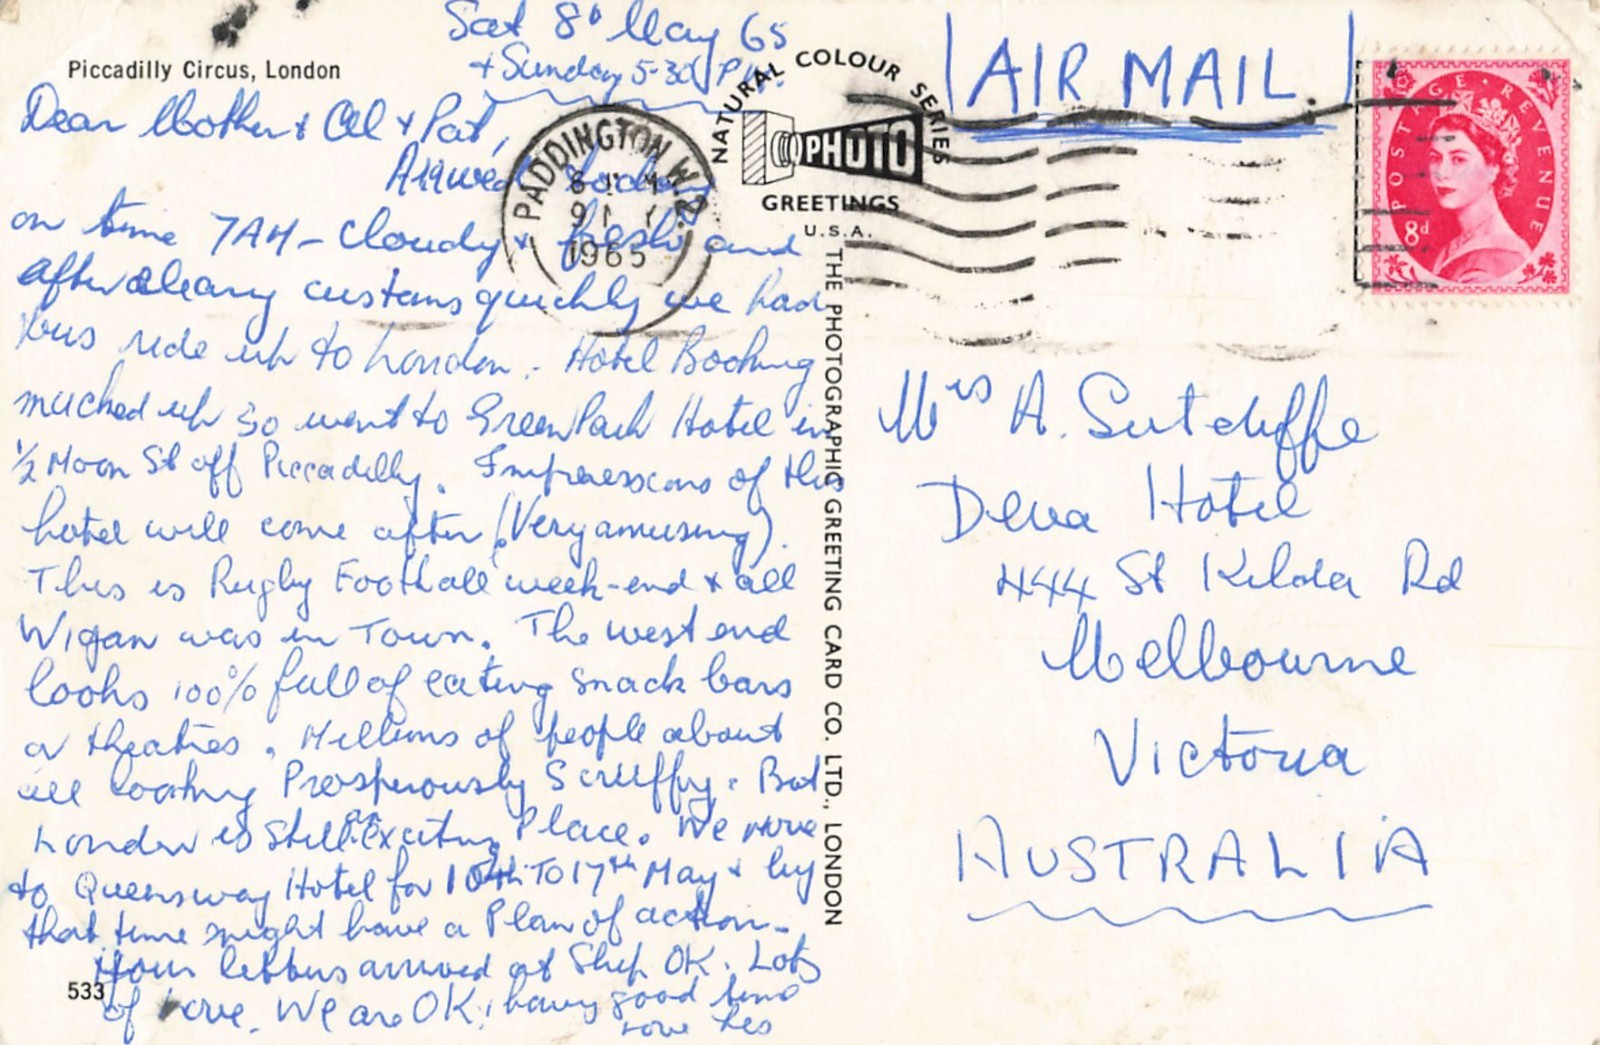 Sat 8th May 65
+ Sunday 5-30 PM.
Piccadilly Circus, London
Dear Mother + Al + Pat,
Arrived today
on time 7AM - cloudy + fresh and
after clearing customs quickly we had
bus ride up to London. - Hotel Booking
mucked up so went to Green Park Hotel in
1/2 Moon St off Piccadilly. Impressions of this
hotel will come after (Very amusing).
This is Rugby Football week-end + all
Wigan was in Town. The west end
looks 100% full of eating snack bars
or theatres. Millions of people about
all looking Prosperously Scruffy. But
London is still an Exciting Place. We move
to Queensway Hotel for 10th TO 17th May + by
that time might have a Plan of action.
Your letters arrived at Ship OK. Lots
of love. We are OK, having good time
Love Les
533
PADDINGTON W.2
1965
NATURAL COLOUR SERIES
PHOTO
GREETINGS
U.S.A.
THE PHOTOGRAPHIC GREETING CARD CO. LTD., LONDON
AIR MAIL.
POSTAGE REVENUE
8d
Mrs A. Sutcliffe
Deva Hotel
444 St Kilda Rd
Melbourne
Victoria
AUSTRALIA